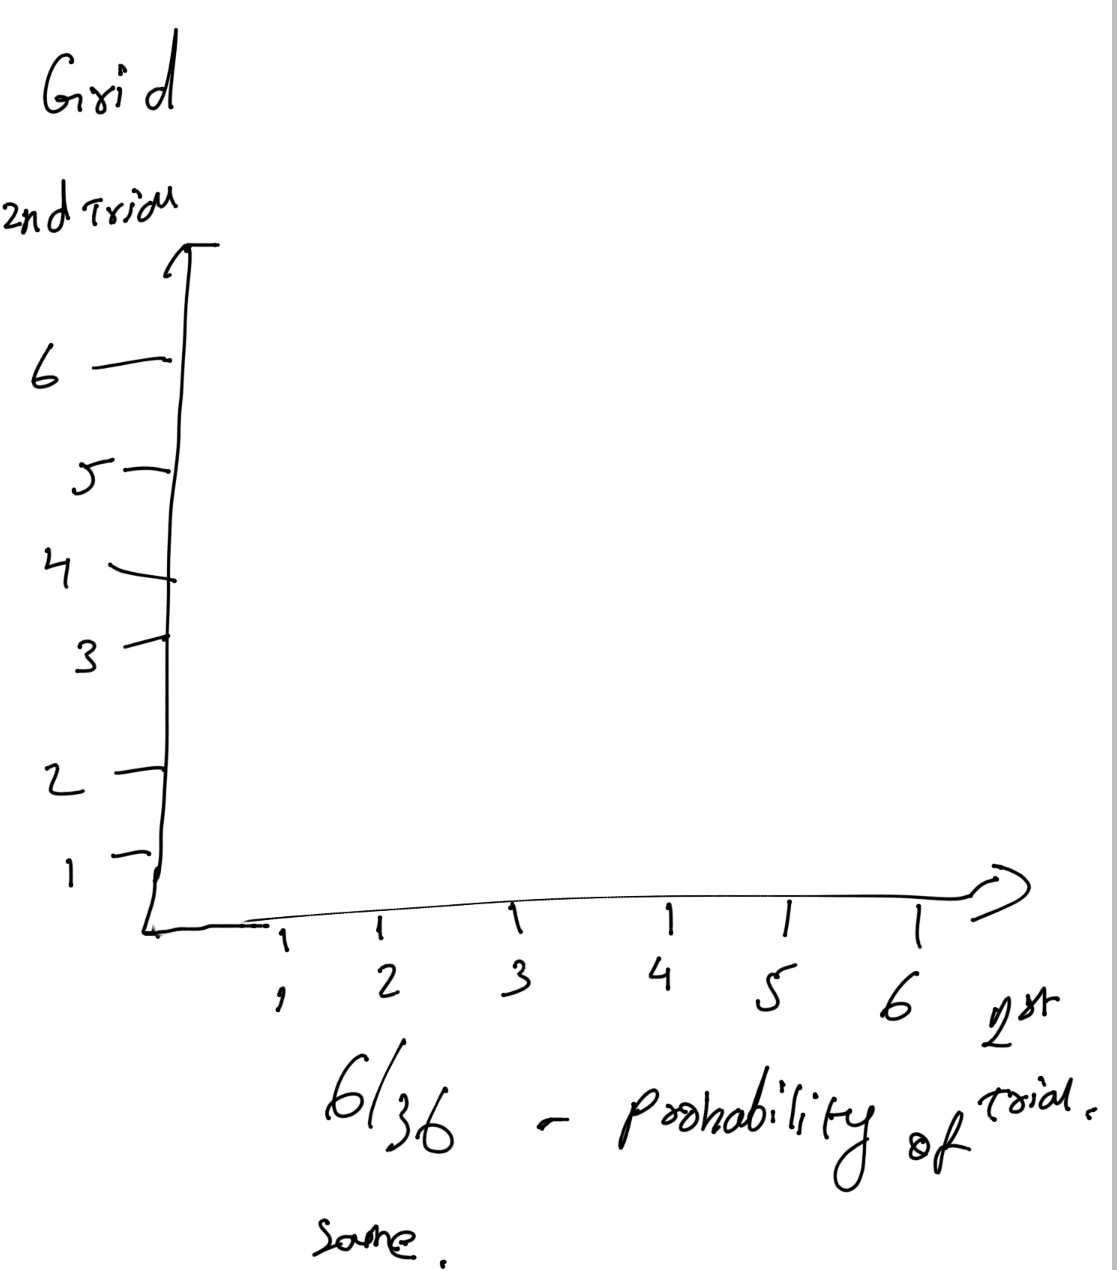 Grid
2nd Trial
6
5
4
3
2
1
1 2 3 4 5 6 1st
Trial.
6/36 - probability of
same.